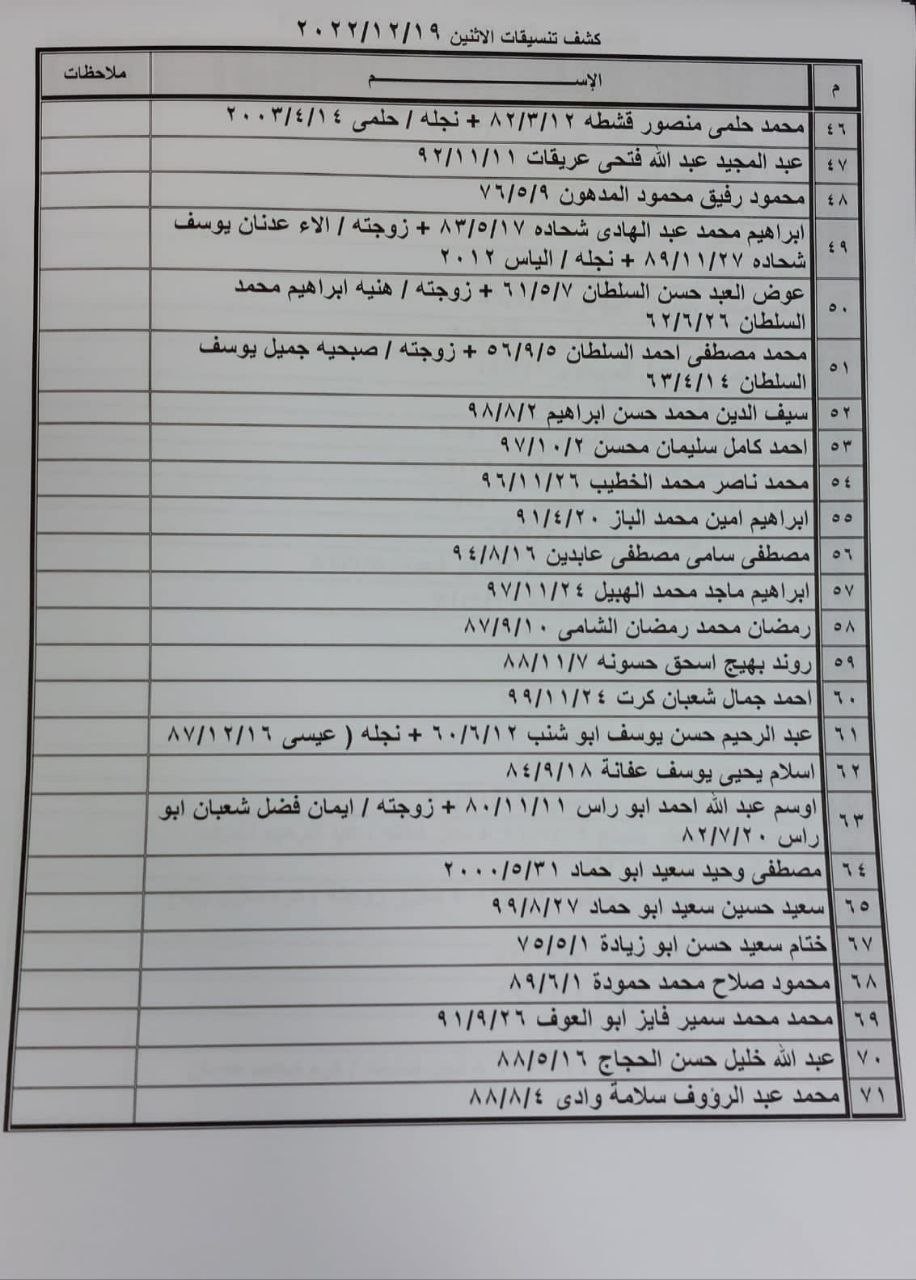 كشف تنسيقات الاثنين ٢٠٢٢/١٢/١٩
م الإســـــــــم ملاحظات
٤٦ محمد حلمى منصور قشطه ٨٢/٣/١٢ + نجله / حلمى ٢٠٠٣/٤/١٤
٤٧ عبد المجيد عبد الله فتحى عريقات ٩٢/١١/١١
٤٨ محمود رفيق محمود المدهون ٧٦/٥/٩
٤٩ ابراهيم محمد عبد الهادى شحاده ٨٣/٥/١٧ + زوجته / الاء عدنان يوسف
شحاده ٨٩/١١/٢٧ + نجله / الياس ٢٠١٢
٥٠ عوض العبد حسن السلطان ٦١/٥/٧ + زوجته / هنيه ابراهيم محمد
السلطان ٦٢/٦/٢٦
٥١ محمد مصطفى احمد السلطان ٥٦/٩/٥ + زوجته / صبحيه جميل يوسف
السلطان ٦٣/٤/١٤
٥٢ سيف الدين محمد حسن ابراهيم ٩٨/٨/٢
٥٣ احمد كامل سليمان محسن ٩٧/١٠/٢
٥٤ محمد ناصر محمد الخطيب ٩٦/١١/٢٦
٥٥ ابراهيم امين محمد الباز ٩١/٤/٢٠
٥٦ مصطفى سامى مصطفى عابدين ٩٤/٨/١٦
٥٧ ابراهيم ماجد محمد الهبيل ٩٧/١١/٢٤
٥٨ رمضان محمد رمضان الشامى ٨٧/٩/١٠
٥٩ روند بهيج اسحق حسونه ٨٨/١١/٧
٦٠ احمد جمال شعبان كرت ٩٩/١١/٢٤
٦١ عبد الرحيم حسن يوسف ابو شنب ٦٠/٦/١٢ + نجله ( عيسى ٨٧/١٢/١٦
٦٢ اسلام يحيى يوسف عفانة ٨٤/٩/١٨
٦٣ اوسم عبد الله احمد ابو راس ٨٠/١١/١١ + زوجته / ايمان فضل شعبان ابو
راس ٨٢/٧/٢٠
٦٤ مصطفى وحيد سعيد ابو حماد ٢٠٠٠/٥/٣١
٦٥ سعيد حسين سعيد ابو حماد ٩٩/٨/٢٧
٦٧ ختام سعيد حسن ابو زيادة ٧٥/٥/١
٦٨ محمود صلاح محمد حمودة ٨٩/٦/١
٦٩ محمد محمد سمير فايز ابو العوف ٩١/٩/٢٦
٧٠ عبد الله خليل حسن الحجاج ٨٨/٥/١٦
٧١ محمد عبد الرؤوف سلامة وادى ٨٨/٨/٤